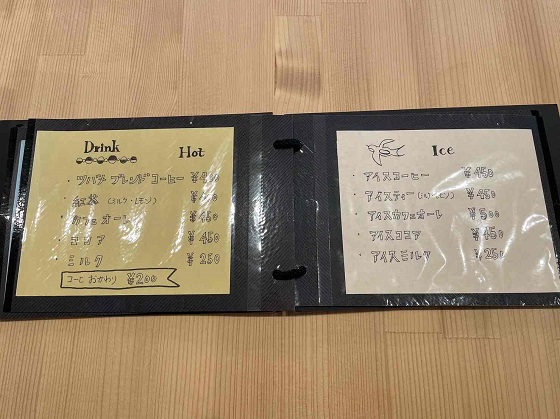 Drink
Hot
・ツバメ ブレンドコーヒー
・紅茶 (ミルク・レモン)
・カフェオーレ ¥450
・ココア ¥450
・ミルク ¥250
コーヒーおかわり ¥200
Ice
・アイスコーヒー ¥450
・アイスティー (ミルク・レモン) ¥450
・アイスカフェオーレ ¥500
・アイスココア ¥450
・アイスミルク ¥250